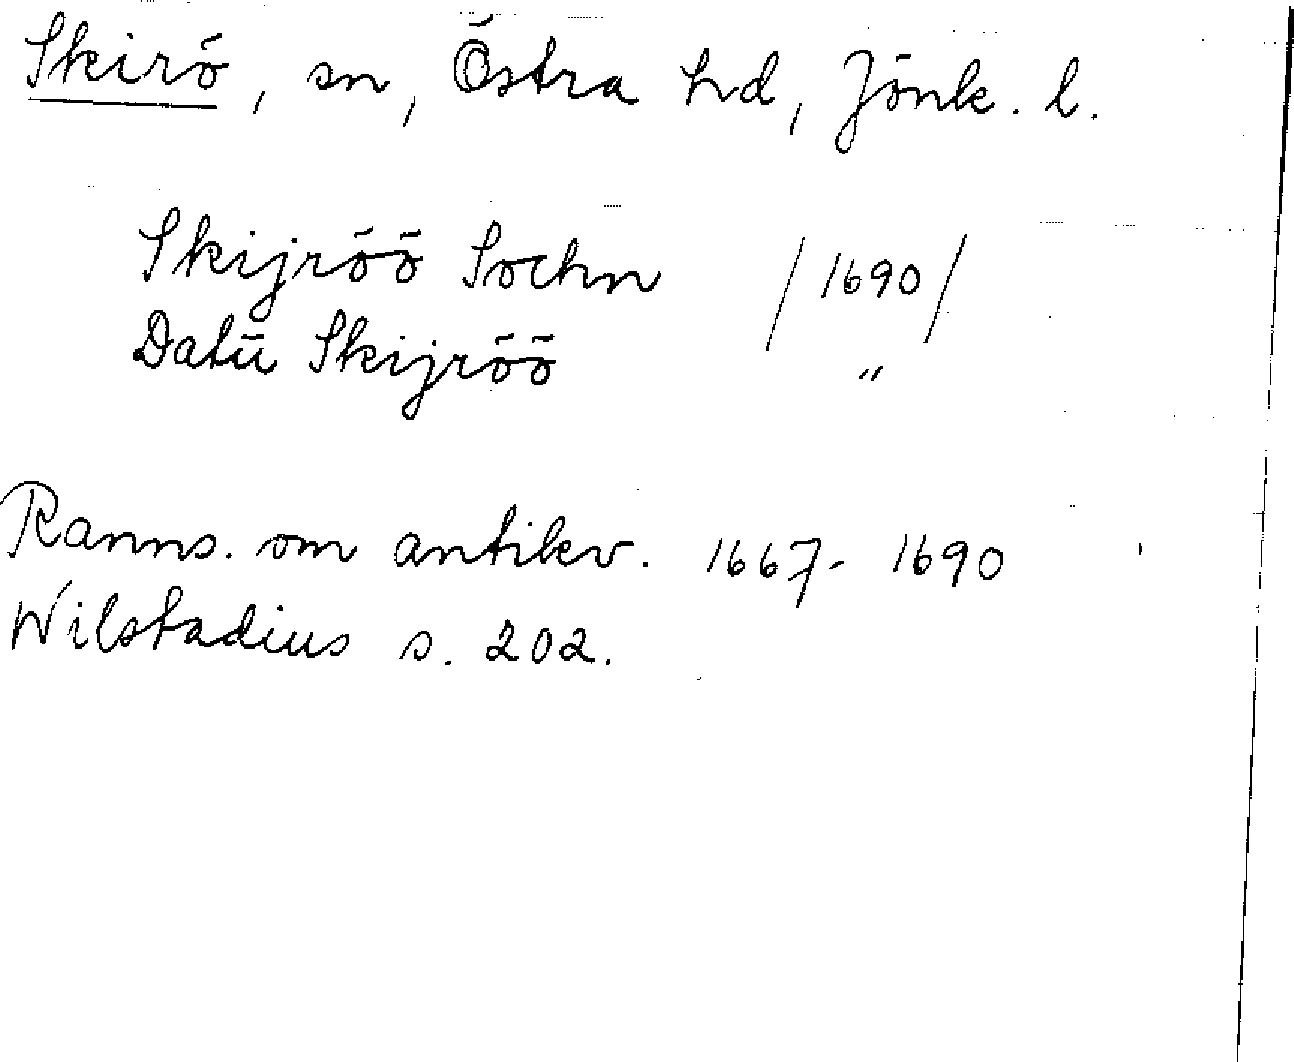 Skirö, sn, Östra hd, Jönk. l.
Skijröö Sochn /1690/
Datū Skijröö "
Ranns. om antikv. 1667-1690
Wilstadius s. 202.